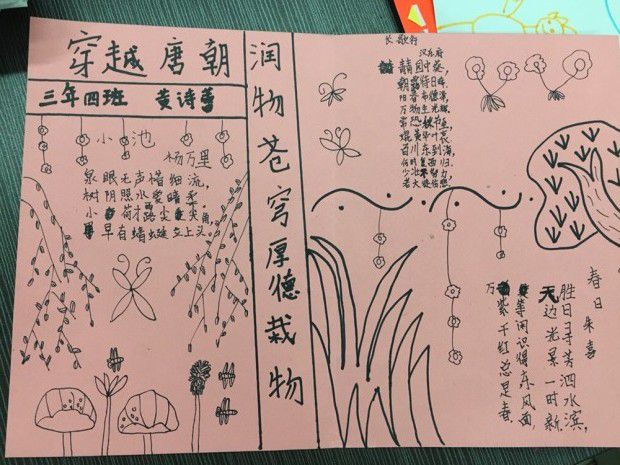 穿越唐朝
三年四班 黄诗蕾
小池
杨万里
泉眼无声惜细流，
树阴照水爱晴柔
小荷才露尖尖角，
早有蜻蜓立上头
润物苍穹厚德栽物
长歌行
汉乐府
青青园中葵，
朝露待日晞
阳春布德泽，
万物生光辉
常恐秋节至，
焜黄华叶衰
百川东到海，
何时复西归
少壮不努力
老大徒伤悲
春日 朱喜
胜日寻芳泗水滨，
天边光景一时新.
等闲识得东风面，
万紫千红总是春.